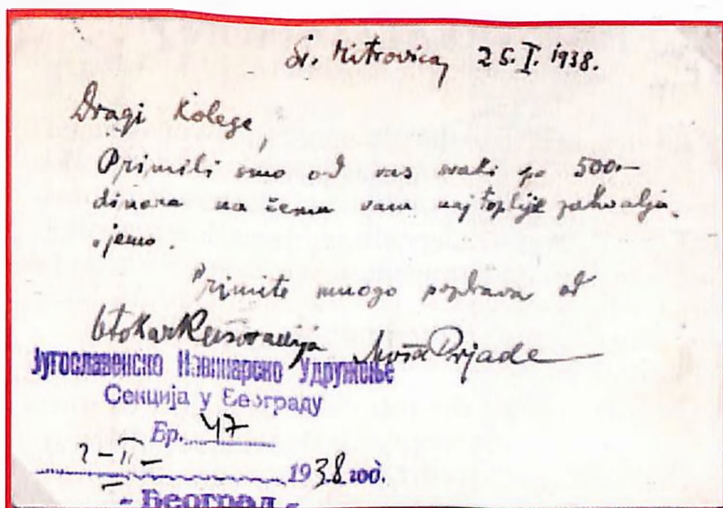 Sr. Mitrovica, 25. I. 1938.
Dragi Kolege,
Primili smo od vas svaki po 500.—
dinara na čemu vam najtoplije zahvalju-
jemo.
Primite mnogo pozdrava od
Otokar Keršovanija Moša Pijade
Југославенско Новинарско Удружење
Секција у Београду
Бр. 47
2-II-
1938 год.
- Београд -